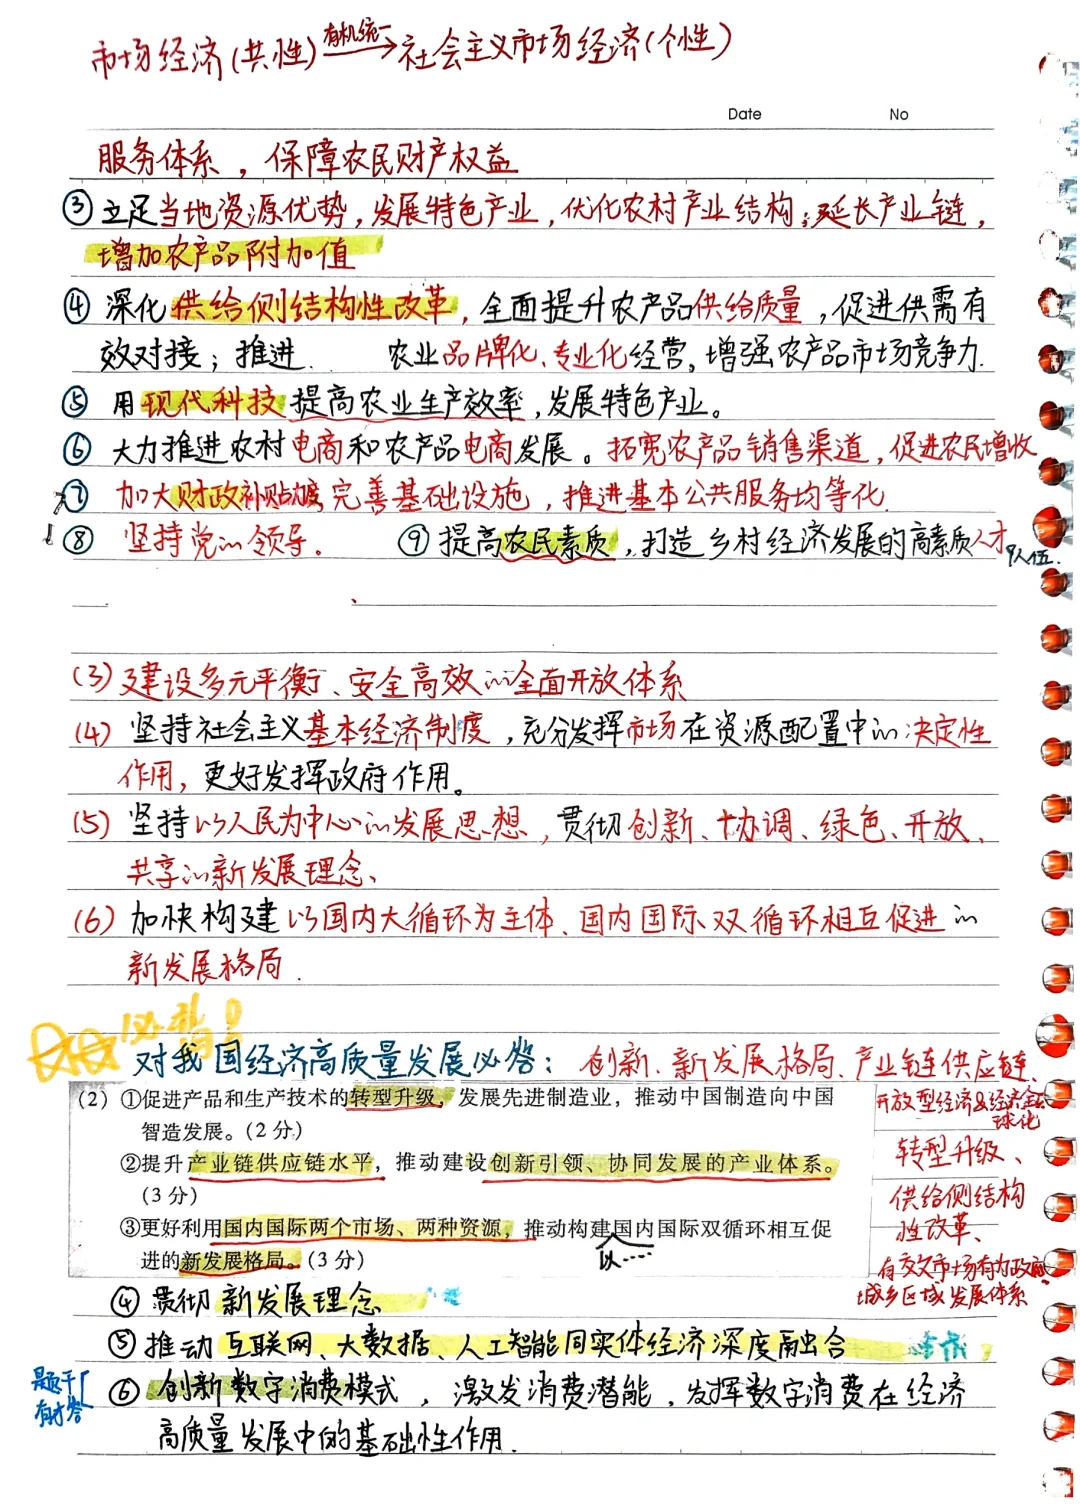 市场经济(共性)有机统一→社会主义市场经济(个性)
Date No
服务体系，保障农民财产权益
③立足当地资源优势，发展特色产业，优化农村产业结构；延长产业链，
增加农产品附加值
④深化供给侧结构性改革，全面提升农产品供给质量，促进供需有
效对接；推进 农业品牌化、专业化经营，增强农产品市场竞争力.
⑤用现代科技提高农业生产效率，发展特色产业。
⑥大力推进农村电商和农产品电商发展。拓宽农产品销售渠道，促进农民增收
⑦加大财政补贴力度，完善基础设施，推进基本公共服务均等化
⑧坚持党的领导。 ⑨提高农民素质，打造乡村经济发展的高素质人才
队伍.
(3)建设多元平衡、安全高效的全面开放体系
(4)坚持社会主义基本经济制度，充分发挥市场在资源配置中的决定性
作用，更好发挥政府作用。
(5)坚持以人民为中心的发展思想，贯彻创新、协调、绿色、开放、
共享的新发展理念、
(6)加快构建以国内大循环为主体、国内国际双循环相互促进的
新发展格局.
必背！
对我国经济高质量发展必答：创新、新发展格局、产业链供应链、
开放型经济&经济全
球化
(2)①促进产品和生产技术的转型升级，发展先进制造业，推动中国制造向中国
智造发展。(2分)
转型升级、
②提升产业链供应链水平，推动建设创新引领、协同发展的产业体系。
(3分)
供给侧结构
性改革、
③更好利用国内国际两个市场、两种资源，推动构建国内国际双循环相互促
进的新发展格局。(3分)
以……
有效市场有为政府
城乡区域发展体系
④贯彻新发展理念
⑤推动互联网、大数据、人工智能同实体经济深度融合
题干
有才答
⑥创新数字消费模式，激发消费潜能，发挥数字消费在经济
高质量发展中的基础性作用.